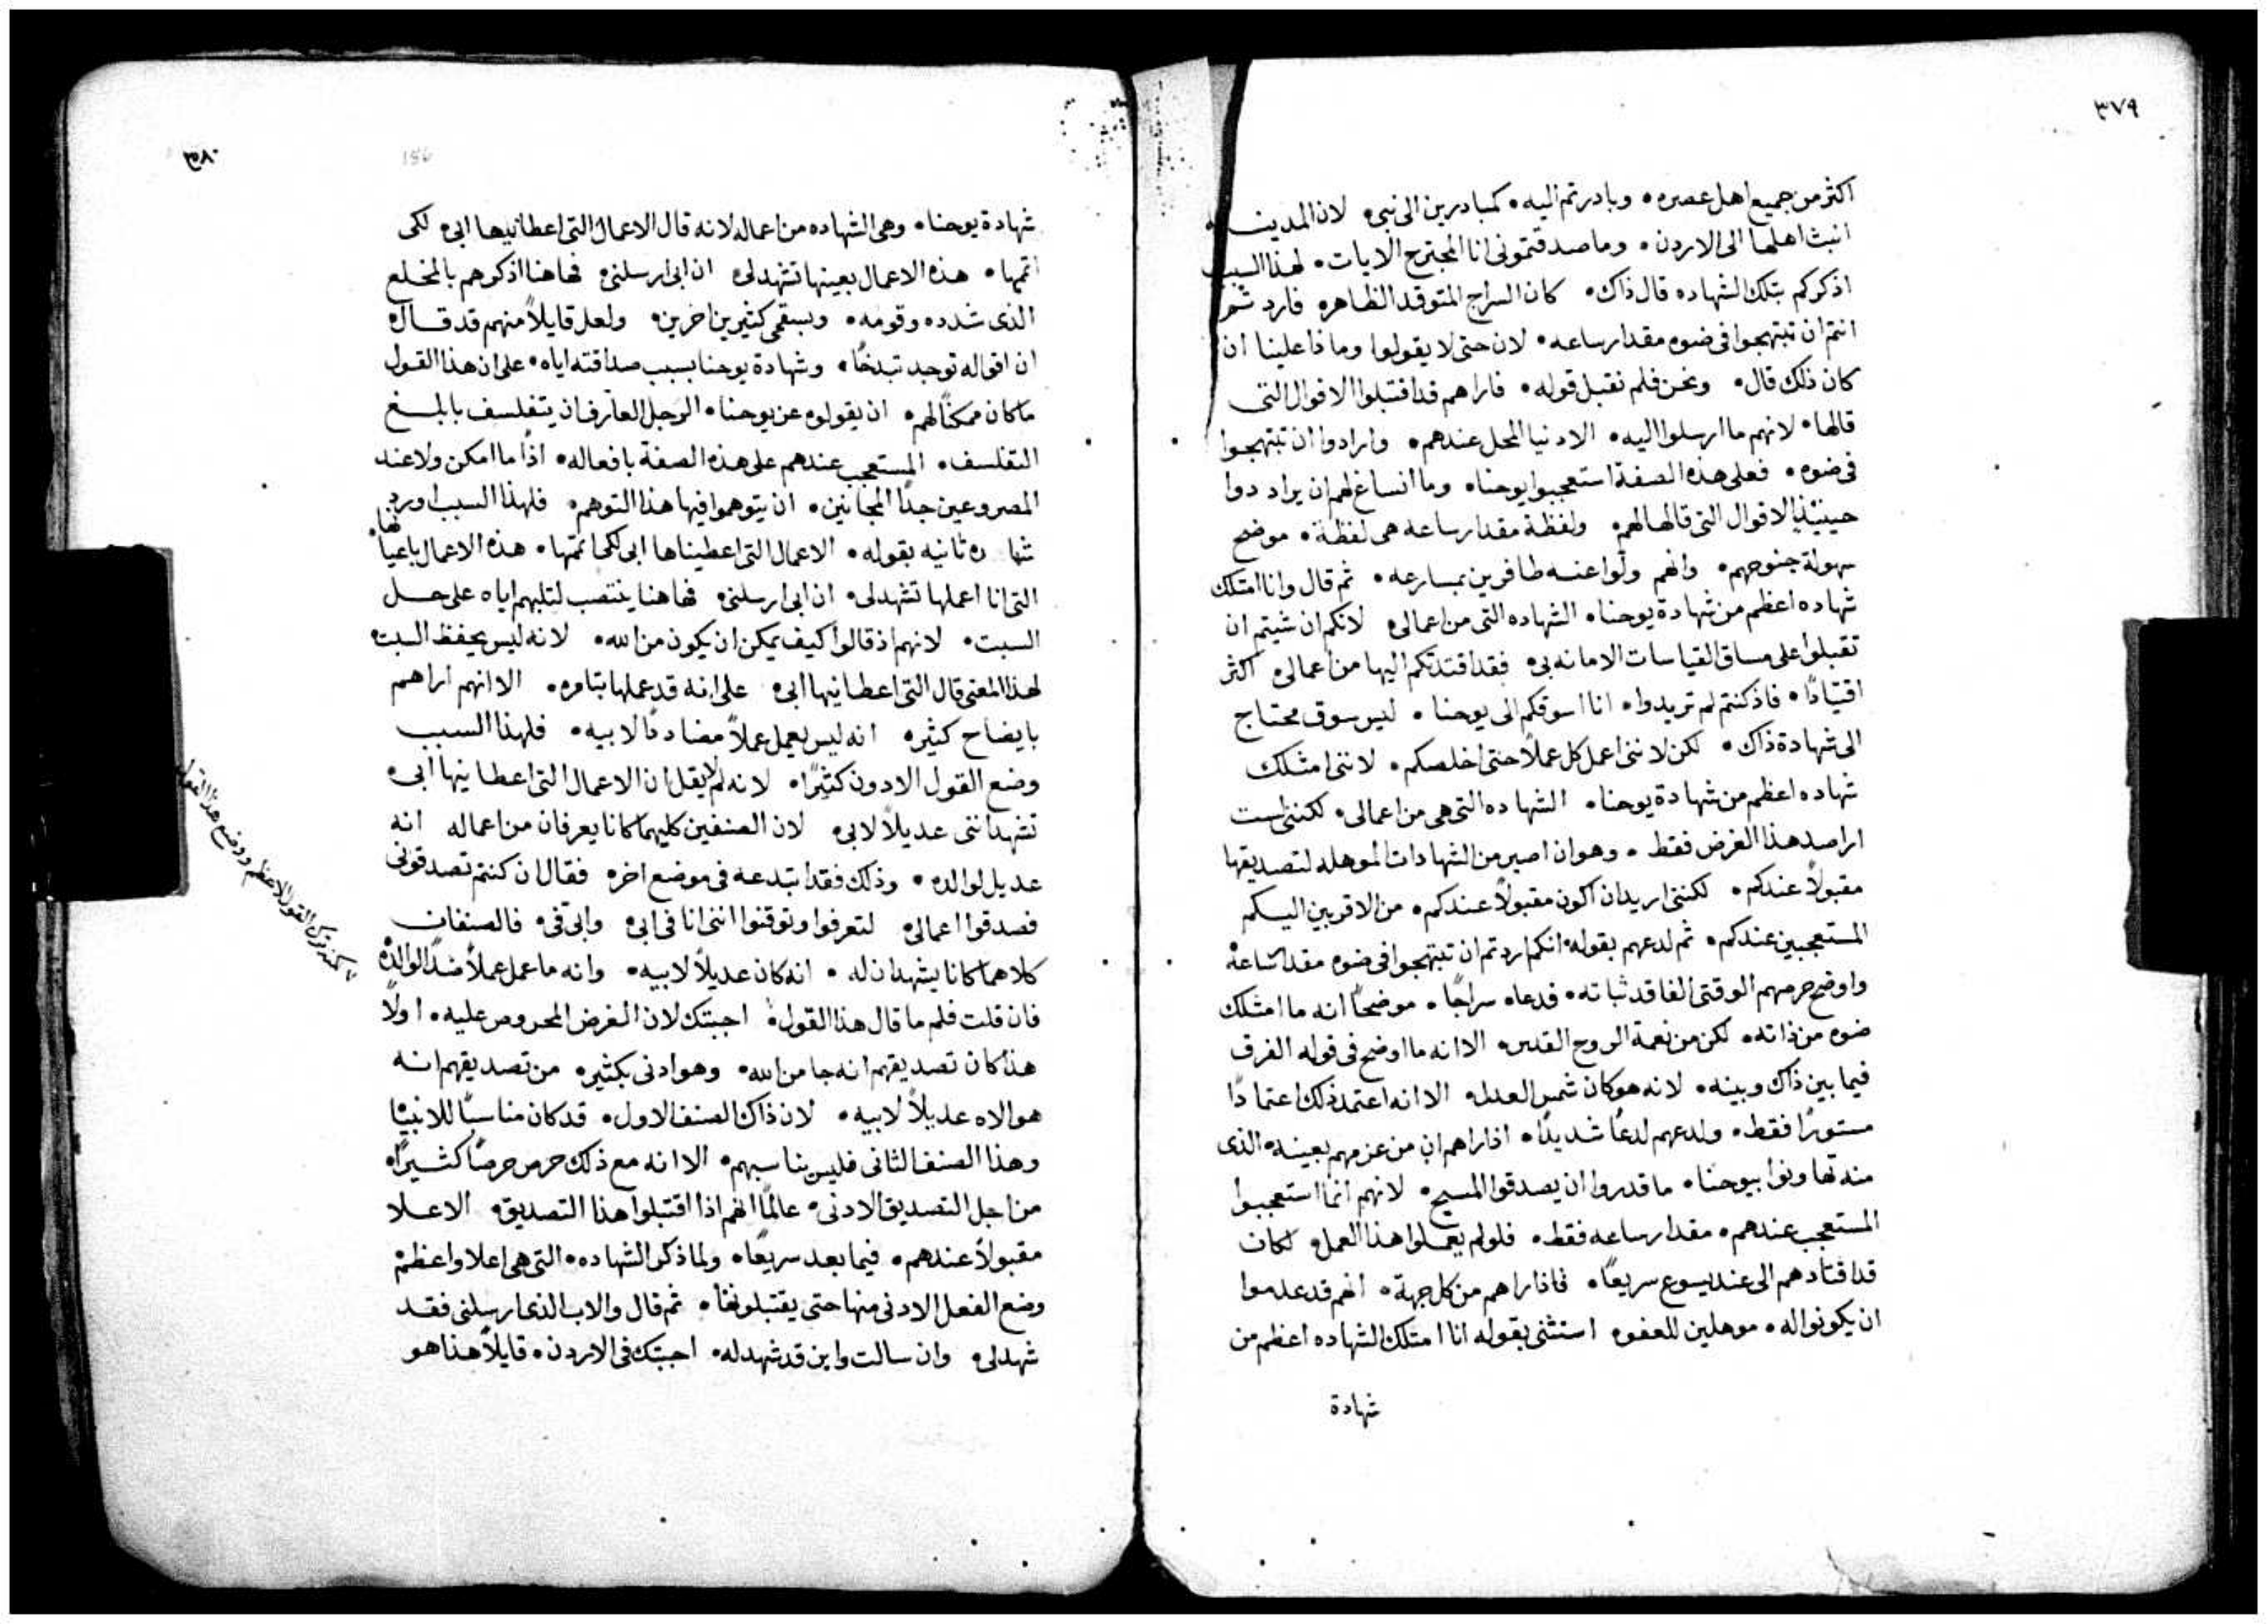 ٣٧٩
اكثر من جميع اهل عصره• وبادرتم اليه• كمبادرين الى نبى• لان المدينـ
انبث اهلها الى الاردن• وما صدقتمونى انا المجترح الايات• لهذا السبب
اذكركم بتلك الشهاده قال ذاك• كان السراج المتوقد الظاهره فارد تم
انتم ان تبتهجوا فى ضوه مقدار ساعه• لان حتى لا يقولوا وماذا علينا ان
كان ذلك قال• ونحن فلم نقبل قوله• فاراهم قد اقتبلوا الاقوال التى
قالها• لانهم ما ارسلوا اليه• الادنيا المحل عندهم• وارادوا ان تبتهجوا
فى ضوه• فعلى هذه الصفة استعجبوا يوحنا• وما انساغ لهم ان يرادوا
حينيذٍ الاقوال التى قالها لهم• ولفظة مقدار ساعه هى لفظة• موضح
سهولة جنوحهم• وانهم ولوا عنه طافرين بمسارعه• ثم قال وانا امتلك
شهاده اعظم من شهادة يوحنا• الشهاده التى من اعمالى• لانكم ان شيتم ان
تقبلوا على مساق القياسات الامانه بى• فقد اقتدتكم اليها من اعمالى• اكثر
اقتيادًا• فاذ كنتم لم تريدوا• انا اسوقكم الى يوحنا• ليس سوق محتاج
الى شهادة ذاك• لكن لاننى اعمل كل عملاً حتى اخلصكم• لاننى امتلك
شهاده اعظم من شهادة يوحنا• الشهاده التى هى من اعمالى• لكننى لست
اراصد هذا الغرض فقط• وهو ان اصير من الشهادات الموهله لتصديقها
مقبولاً عندكم• لكننى اريد ان اكون مقبولاً عندكم• من الاقربين اليكم
المستعجبين عندكم• ثم لدعهم بقوله• انكم اردتم ان تبتهجوا فى ضوه مقدار ساعة
واوضح حرمهم الوقتى الفاقد ثباته• فدعاه سراجًا• موضحًا انه ما امتلك
ضوه من ذاته• لكن من نعمة الروح القدس• الا انه ما اوضح فى قوله الفرق
فيما بين ذاك وبينه• لانه هو كان شمس العدل• الا انه اعتمد ذلك اعتمادًا
مستورًا فقط• ولدعهم لدعًا شديدًا• اذ اراهم ان من عزمهم بعينه• الذى
منه تهاونوا بيوحنا• ما قدروا ان يصدقوا المسيح• لانهم انما استعجبوا
المستعجب عندهم• مقدار ساعه فقط• فلو لم يعملوا هذا العمل• لكان
قد اقتادهم الى عند يسوع سريعًا• فاذ اراهم من كل جهة• انهم قد عدموا
ان يكونوا له• موهلين للعفو• استثنى بقوله انا امتلك الشهاده اعظم من
شهادة
٣٨٠
شهادة يوحنا• وهى الشهاده من اعماله لانه قال الاعمال التى اعطانيها ابى• لكى
اتمها• هذه الاعمال بعينها تشهد لى• ان ابى ارسلنى• فهاهنا اذكرهم بالمخلع
الذى شدده وقومه• وبسقمى كثيرين اخرين• ولعل قايلاً منهم قد قال•
ان اقواله توجد تبدخًا• وشهادة يوحنا بسبب صداقته اياه• على ان هذا القول
ما كان ممكنًا لهم• ان يقولوه عن يوحنا• الرجل العارف ان يتفلسف بابلغ
التفلسف• المستعجب عندهم على هذه الصفة بافعاله• اذًا ما امكن ولا عند
المصروعين جدًا المجانين• ان يتوهموا فيها هذا التوهم• فلهذا السبب اورد
شهاده ثانيه بقوله• الاعمال التى اعطيناها ابى لكى اتمها• هذه الاعمال باعيانها•
التى انا اعملها تشهد لى• ان ابى ارسلنى• فهاهنا ينتصب لتلبهم اياه على حل
السبت• لانهم اذ قالوا كيف يمكن ان يكون من الله• لانه ليس يحفظ السبت•
لهذا المعنى قال التى اعطانيها ابى• على انه قد عملها بتامره• الا انهم اراهم
بايضاح كثير• انه ليس يعمل عملاً مضاددًا لابيه• فلهذا السبب
وضع القول الادون كثيرًا• لانه لم يقل ان الاعمال التى اعطانيها ابى•
تشهد اننى عديلاً لابى• لان الصنفين كليهما كانا يعرفان من اعماله انه
عديل لوالده• وذلك فقد ابتدعه فى موضع اخر• فقال ان كنتم تصدقونى
فصدقوا اعمالى• لتعرفوا وتوقنوا اننى انا فى ابى• وابى فى• فالصنفان
كلاهما كانا يشهدان له• انه كان عديلاً لابيه• وانه ما عمل عملاً ضد الوالده
فان قلت فلم ما قال هذا القول• اجبتك لان الغرض المحروص عليه• اولاً
هذا كان تصديقهم انه جا من الله• وهو ادنى بكثير• من تصديقهم انه
هو الاه عديلاً لابيه• لان ذاك الصنف الاول• قد كان مناسبًا للانبيا
وهذا الصنف الثانى فليس يناسبهم• الا انه مع ذلك حرص حرصًا كثيرًا•
من اجل التصديق الادنى• عالمًا انهم اذا اقتبلوا هذا التصديق• الاعلا
مقبولاً عندهم• فيما بعد سريعًا• ولما ذكر الشهاده• التى هى اعلا واعظم
وضع الفعل الادنى منها حتى يقتبلونها• ثم قال والاب الذى ارسلنى فقد
شهد لى• وان سالت واين قد شهد له• اجبتك فى الاردن• قايلاً هذا هو
ترك القول الاعظم ووضع هذا القول